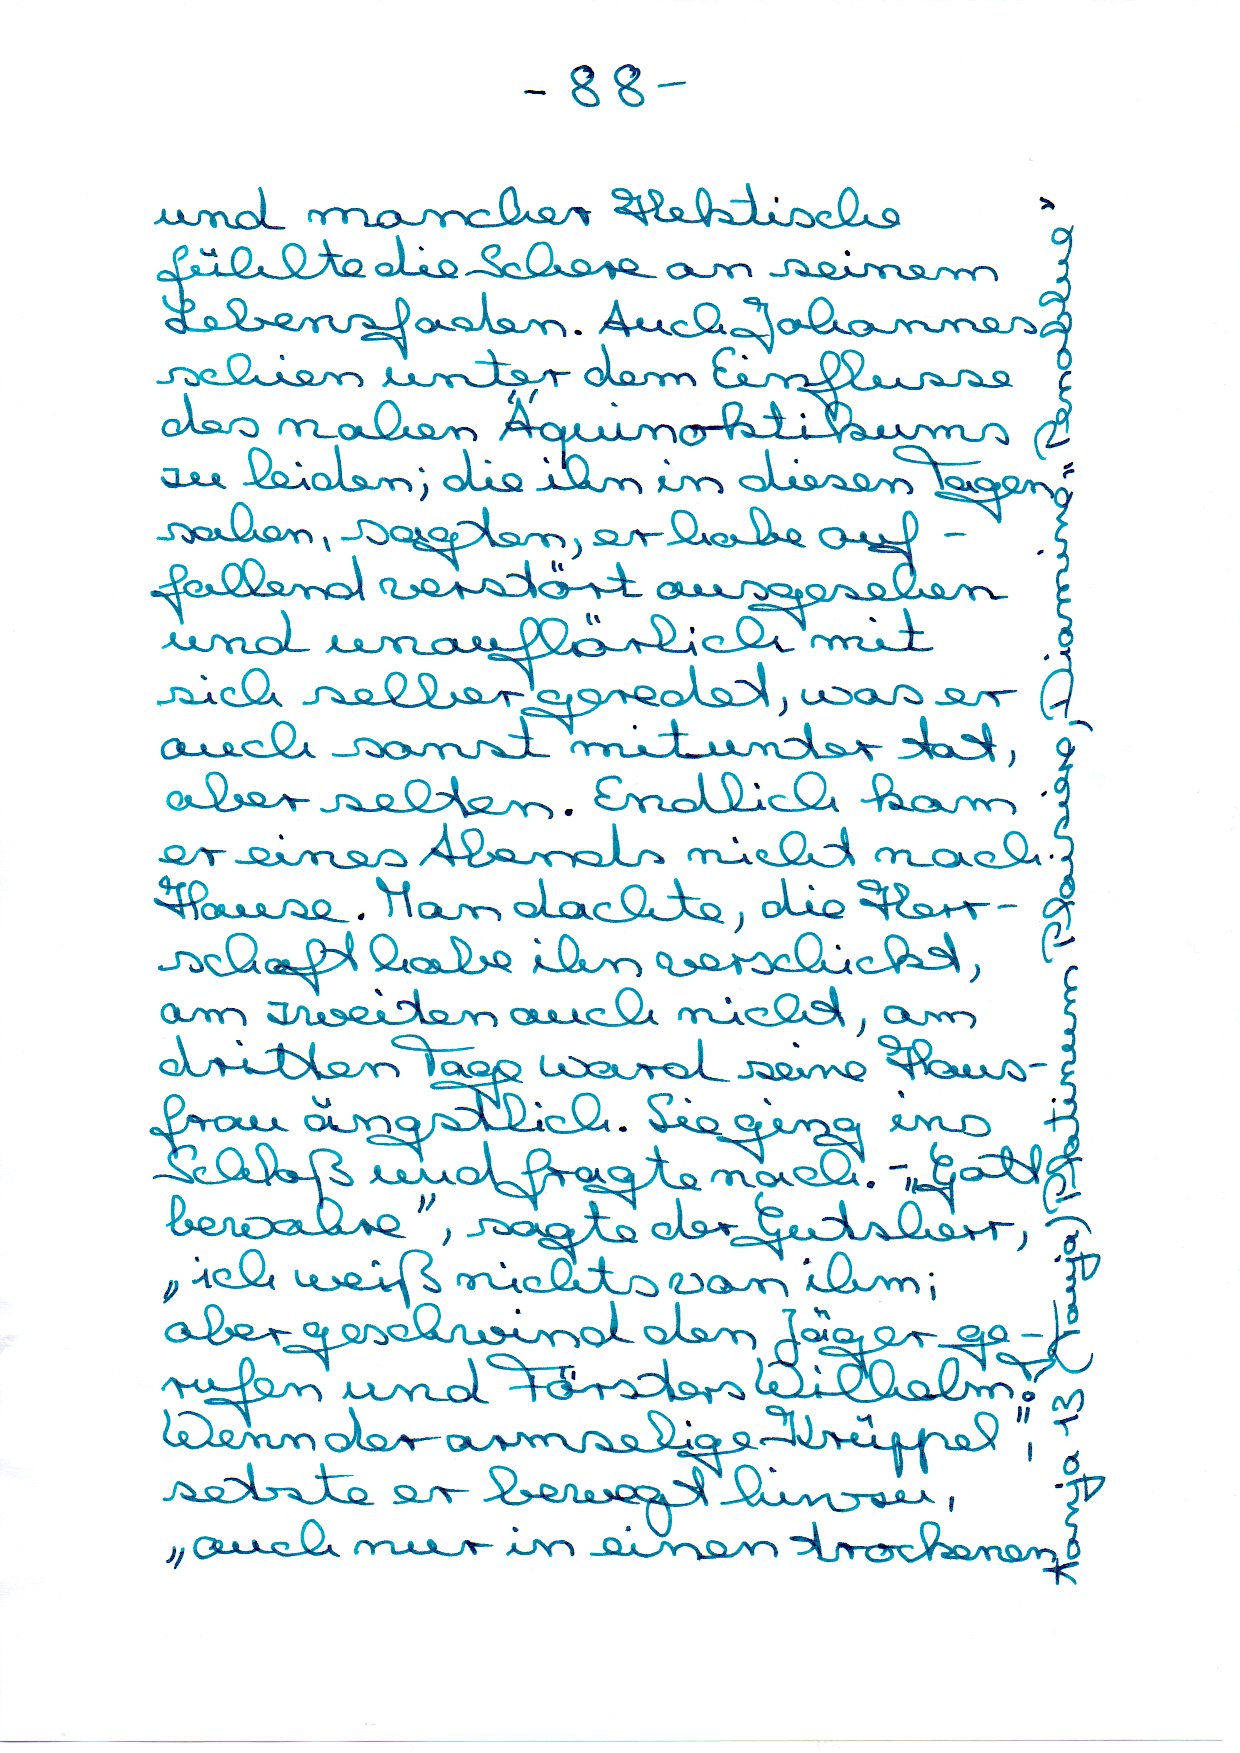 - 88 -
und mancher Hektische
fühlte die Schere an seinem
Lebensfaden. Auch Johannes
schien unter dem Einflusse
des nahen Äquinoktikums
zu leiden; die ihn in diesen Tagen
sahen, sagten, er habe auf-
fallend verstört ausgesehen
und unaufhörlich mit
sich selber geredet, was er
auch sonst mitunter tat,
aber selten. Endlich kam
er eines Abends nicht nach
Hause. Man dachte, die Herr-
schaft habe ihn verschickt,
am zweiten auch nicht, am
dritten Tage ward seine Haus-
frau ängstlich. Sie ging ins
Schloß und fragte nach. - „Gott
bewahre", sagte der Gutsherr,
„ich weiß nichts von ihm;
aber geschwind den Jäger ge-
rufen und Försters Wilhelm!
Wenn der armselige Krüppel",
setzte er bewegt hinzu,
„auch nur in einen trockenen
13 Platinum Diamine